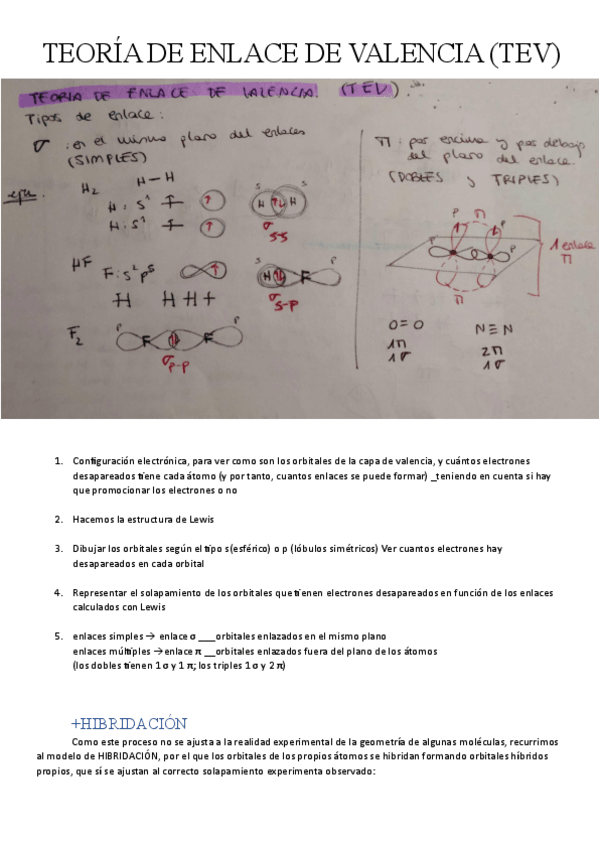 TEORÍA DE ENLACE DE VALENCIA (TEV)
TEORIA DE ENLACE DE VALENCIA. (TEV).
Tipos de enlace:
σ : en el mismo plano del enlaces
(SIMPLES)
π : por encima y por debajo
del plano del enlace.
(DOBLES y TRIPLES)
ejm.
H2
H–H
H: s¹ ↑
H: s¹ ↑
s s
H ↑↓ H
σ
s-s
HF
F: s² p⁵ ↑
s p
H F
σ
s-p
F2
p p
F F
σ p-p
p π p
1 enlace
π
π
O=O
1π
1σ
N≡N
2π
1σ
1. Configuración electrónica, para ver como son los orbitales de la capa de valencia, y cuántos electrones
desapareados tiene cada átomo (y por tanto, cuantos enlaces se puede formar) _teniendo en cuenta si hay
que promocionar los electrones o no
2. Hacemos la estructura de Lewis
3. Dibujar los orbitales según el tipo s(esférico) o p (lóbulos simétricos) Ver cuantos electrones hay
desapareados en cada orbital
4. Representar el solapamiento de los orbitales que tienen electrones desapareados en función de los enlaces
calculados con Lewis
5. enlaces simples → enlace σ ___orbitales enlazados en el mismo plano
enlaces múltiples →enlace π __orbitales enlazados fuera del plano de los átomos
(los dobles tienen 1 σ y 1 π; los triples 1 σ y 2 π)
+HIBRIDACIÓN
Como este proceso no se ajusta a la realidad experimental de la geometría de algunas moléculas, recurrimos
al modelo de HIBRIDACIÓN, por el que los orbitales de los propios átomos se hibridan formando orbitales híbridos
propios, que sí se ajustan al correcto solapamiento experimenta observado: